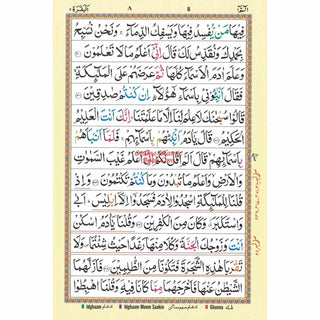 الٓمّٓ ١ ٨ البقرة ٢
فِيْهَا مَنْ يُّفْسِدُ فِيْهَا وَيَسْفِكُ الدِّمَآءَ ۚ وَنَحْنُ نُسَبِّحُ
بِحَمْدِكَ وَنُقَدِّسُ لَكَ ؕ قَالَ اِنِّيْۤ اَعْلَمُ مَا لَا تَعْلَمُوْنَ
وَعَلَّمَ اٰدَمَ الْاَسْمَآءَ كُلَّهَا ثُمَّ عَرَضَهُمْ عَلَى الْمَلٰٓئِكَةِ ۙ
فَقَالَ اَنْۢبِـُٔوْنِيْ بِاَسْمَآءِ هٰٓؤُلَآءِ اِنْ كُنْتُمْ صٰدِقِيْنَ
قَالُوْا سُبْحٰنَكَ لَا عِلْمَ لَنَاۤ اِلَّا مَا عَلَّمْتَنَا ؕ اِنَّكَ اَنْتَ الْعَلِيْمُ
الْحَكِيْمُ قَالَ يٰۤاٰدَمُ اَنْۢبِئْهُمْ بِاَسْمَآئِهِمْ ۚ فَلَمَّاۤ اَنْۢبَاَهُمْ
بِاَسْمَآئِهِمْ ۙ قَالَ اَلَمْ اَقُلْ لَّكُمْ اِنِّيْۤ اَعْلَمُ غَيْبَ السَّمٰوٰتِ
وَالْاَرْضِ ۙ وَاَعْلَمُ مَا تُبْدُوْنَ وَمَا كُنْتُمْ تَكْتُمُوْنَ وَاِذْ
قُلْنَا لِلْمَلٰٓئِكَةِ اسْجُدُوْا لِاٰدَمَ فَسَجَدُوْۤا اِلَّاۤ اِبْلِيْسَ ؕ اَبٰى
وَاسْتَكْبَرَ ۫ وَكَانَ مِنَ الْكٰفِرِيْنَ وَقُلْنَا يٰۤاٰدَمُ اسْكُنْ
اَنْتَ وَزَوْجُكَ الْجَنَّةَ وَكُلَا مِنْهَا رَغَدًا حَيْثُ شِئْتُمَا ۪ وَلَا
تَقْرَبَا هٰذِهِ الشَّجَرَةَ فَتَكُوْنَا مِنَ الظّٰلِمِيْنَ فَاَزَلَّهُمَا
الشَّيْطٰنُ عَنْهَا فَاَخْرَجَهُمَا مِمَّا كَانَا فِيْهِ ۪ وَقُلْنَا اهْبِطُوْا
Idghaam ادغام Idghaam Meem Saakin ادغام میم ساکن Ghunna غنّہ